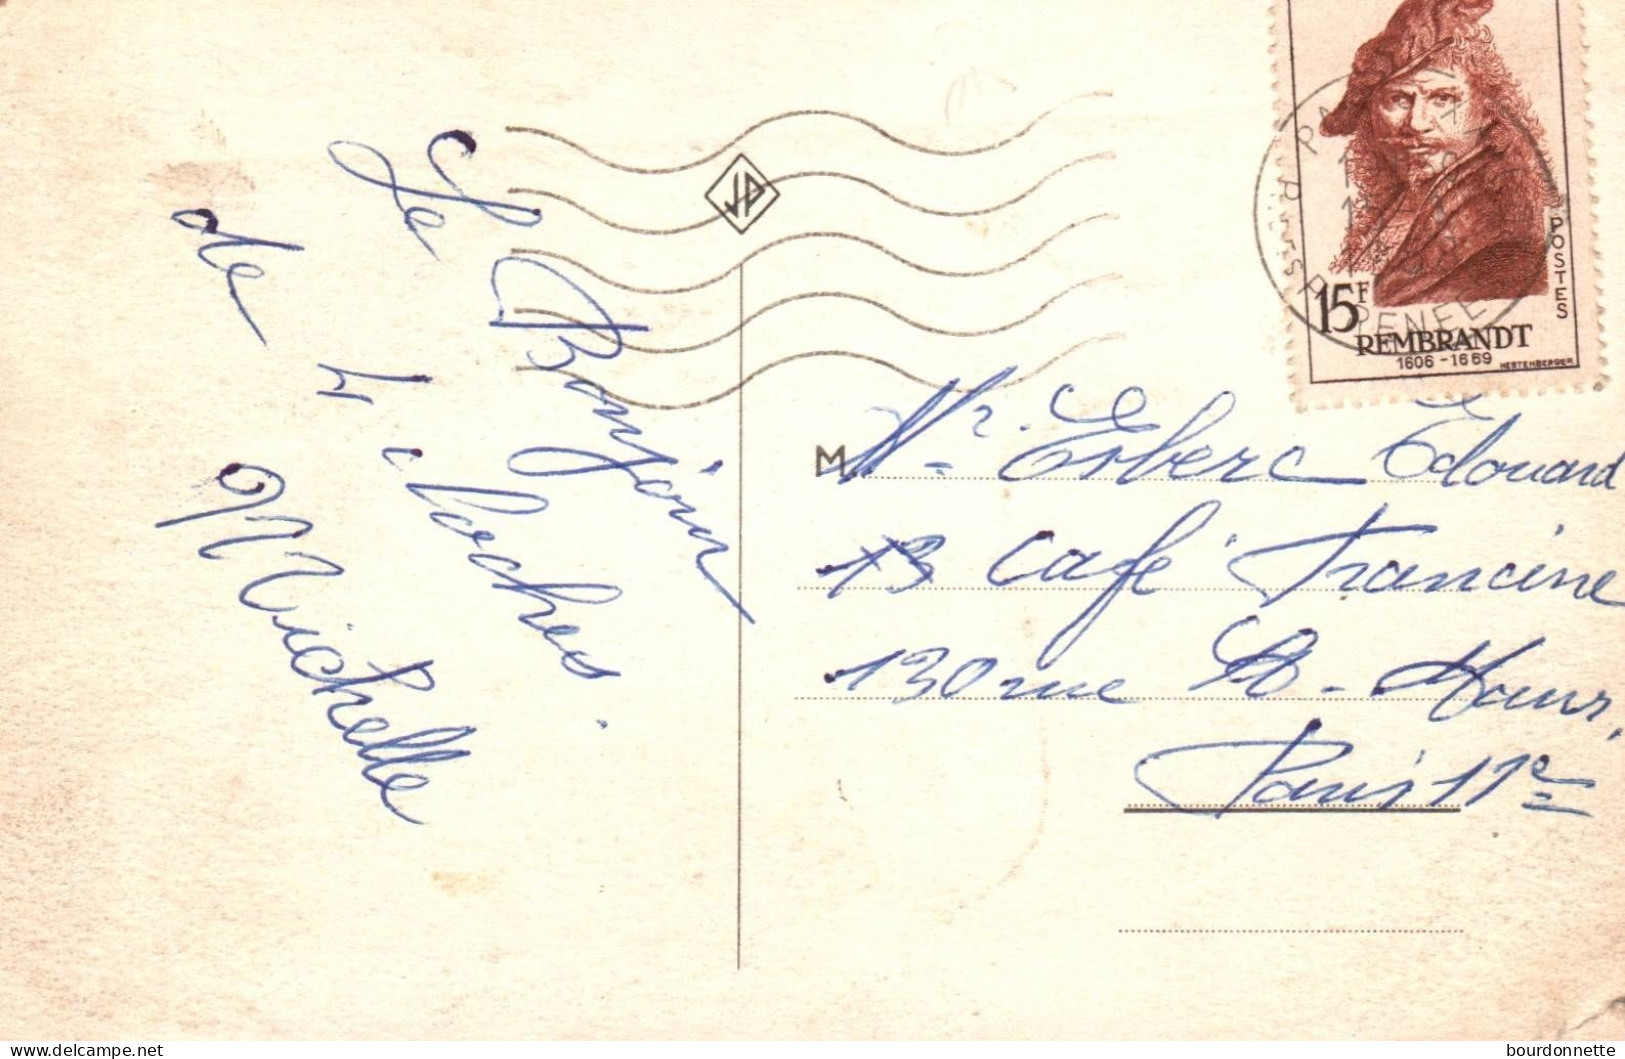 Le Bonjour
de 4 cloches.
Michelle
JP
15F
POSTES
REMBRANDT
1606 - 1669 HERTENBERGER
M. Mr. Esberc Edouard
13 Café Francine
130 rue St-Maur,
Paris 11e
delcampe.net
bourdonnette